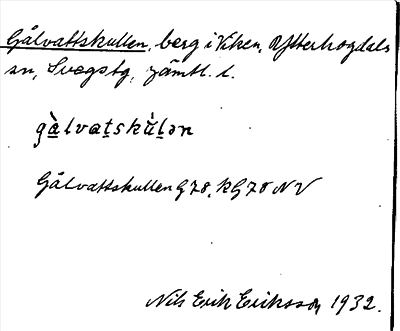 Gålvattskullen, berg i Viken, Ytterhogdals
sn, Svegs tg, Jämtl. l.
gàlvatskùlən
Gålvattskullen G78, KG78 NV
Nils Erik Eriksson 1932.